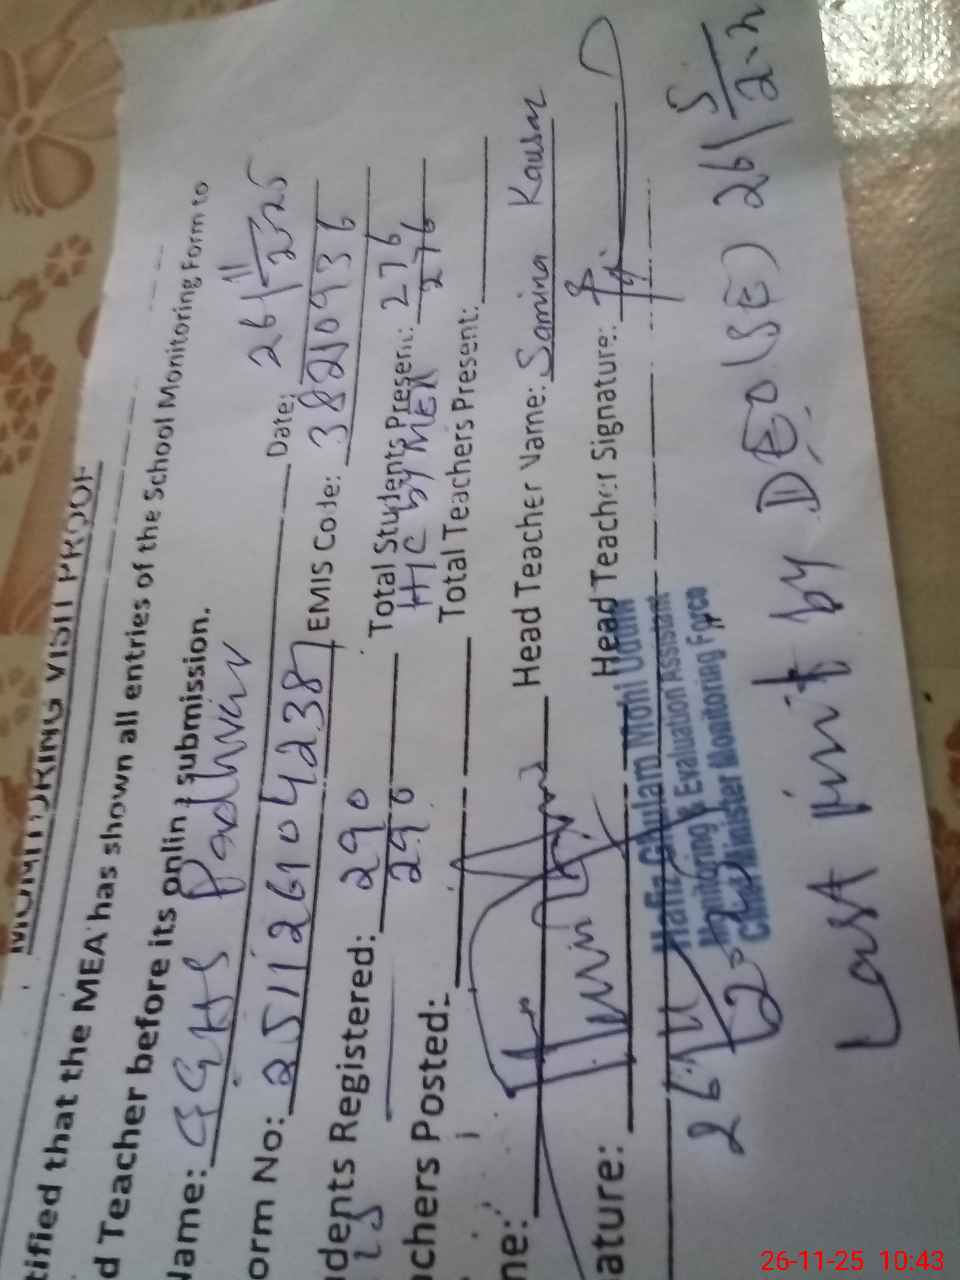 MONITORING VISIT PROOF
tified that the MEA has shown all entries of the School Monitoring Form to
d Teacher before its online submission.
Name: GGHS Padhrar Date: 26/11/2025
orm No: 251126104238 EMIS Code: 38210936
dents Registered: 290 Total Students Present: 276
290 H/C by MEA 276
chers Posted: Total Teachers Present:
me: Head Teacher Name: Samina Kausar
ature: Head Teacher Signature:
Hafiz Ghulam Mohi Uddin
Monitoring & Evaluation Assistant
Chief Minister Monitoring Force
26/11
Last visit by DEO (SE) 26/5
26-11-25 10:43